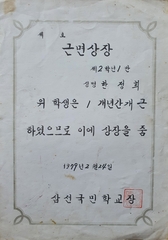 제 호
근면상장
제2학년1반
성명 한정희
위 학생은 1개년간개근
하였으므로 이에 상장을 줌
1979년 2월24일
삼선국민학교장